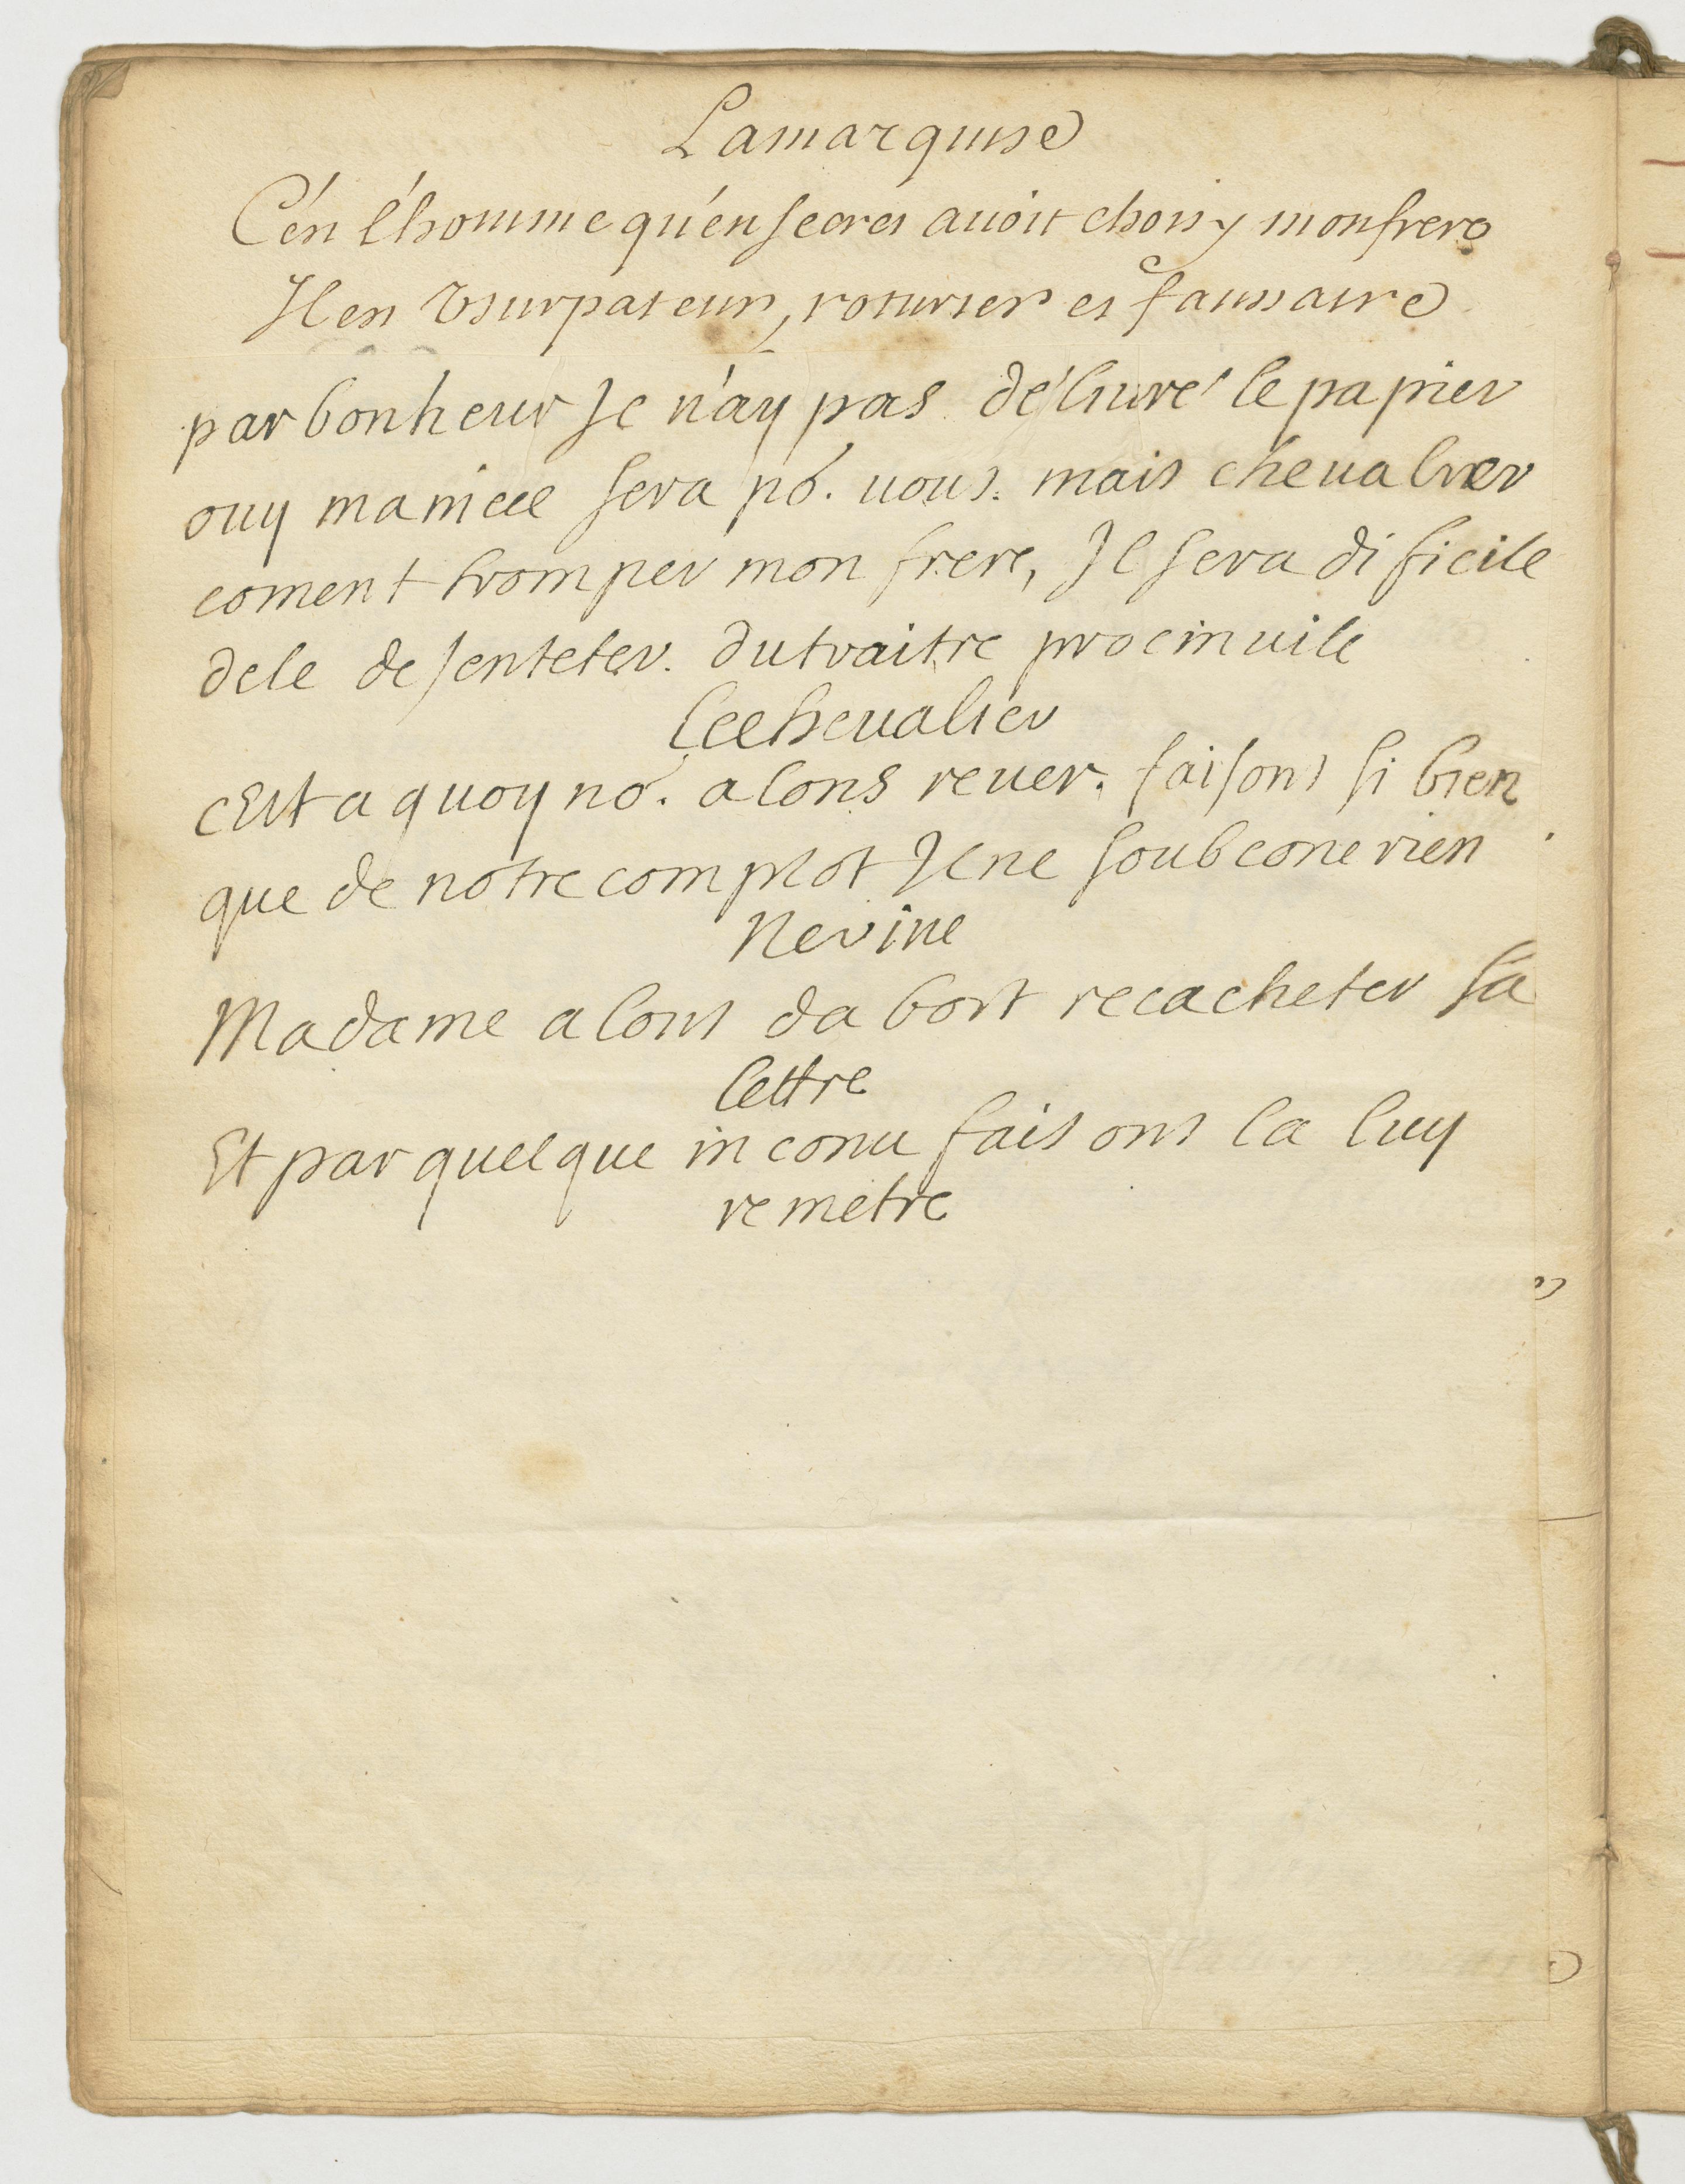 Lamarquise
C'est l'homme qu'en secret auoit choisy monfrere
Il est Vsurpateur, roturier et faussaire
par bonheur Je n'ay pas déliuré le papier
ouy maniece sera po. uous. mais cheualier
coment tromper mon frere, Il sera dificile
dele desenteter. dutraitre procinuile
Lecheualier
cEst a quoy no. alons reuer. faisons si bien
que de notre complot Il ne soubcone rien
Nerine
Madame alons dabort recacheter sa
lettre
Et par quelque inconu faisons la luy
remetre